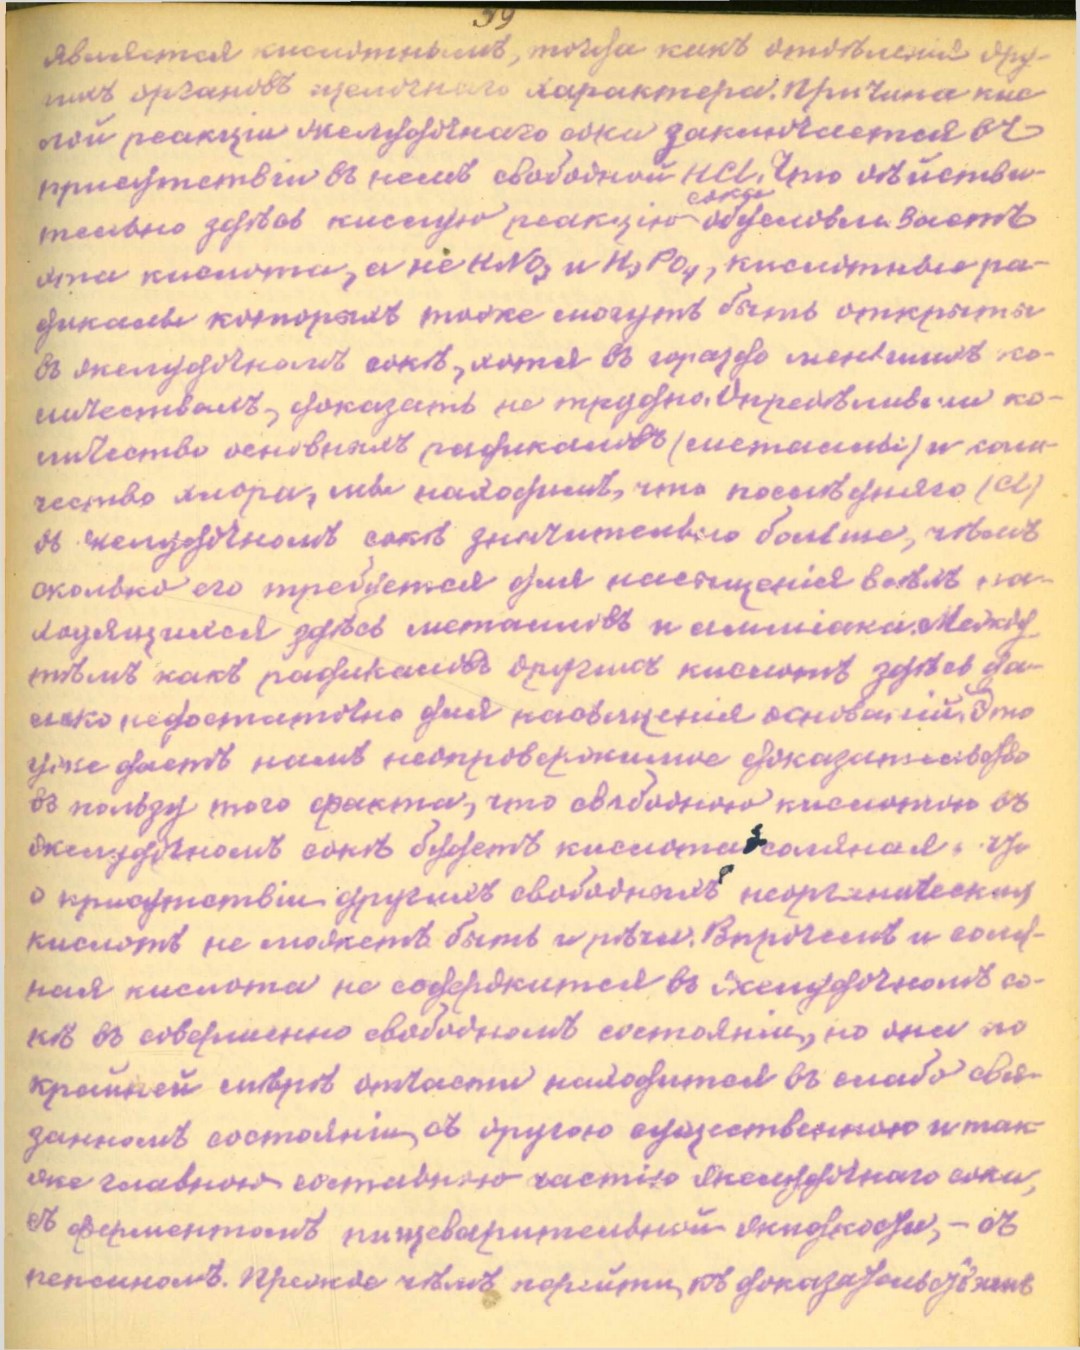 39
является кислотнымъ, тогда какъ отдѣленія дру-
гихъ органовъ щелочнаго характера. Причина кис
лой реакціи желудочнаго сока заключается въ
присутствіи въ немъ свободной HCl. Что дѣйстви-
тельно здѣсь кислую реакцію сока обусловливаетъ
эта кислота, а не HNO3 и H3PO4, кислотные ра-
дикалы которыхъ тоже могутъ быть открыты
въ желудочномъ сокѣ, хотя въ гораздо меньшихъ ко-
личествахъ, доказать не трудно. Опредѣливши ко-
личество основныхъ радикаловъ (металлы) и коли
чество хлора, мы находимъ, что послѣдняго (Cl)
въ желудочномъ сокѣ значительно больше, чѣмъ
сколько его требуется для насыщенія всѣхъ на-
ходящихся здѣсь металловъ и амміака. Между
тѣмъ какъ радикаловъ другихъ кислотъ здѣсь да-
леко недостаточно для насыщенія основаній. Это
уже даетъ намъ неопровержимое доказательство
въ пользу того факта, что свободною кислотою въ
желудочномъ сокѣ будетъ кислота соляная.
о присутствіи другихъ свободныхъ неорганическихъ
кислотъ не можетъ быть и рѣчи. Впрочемъ и соля-
ная кислота не содержится въ желудочномъ со-
кѣ въ совершенно свободномъ состояніи, но она по
крайней мѣрѣ отчасти находится въ слабо свя-
занномъ состояніи съ другою существенною и так
же главною составною частію желудочнаго сока,
съ ферментомъ пищеварительной жидкости, – съ
пепсиномъ. Прежде чѣмъ перейти къ доказательствамъ